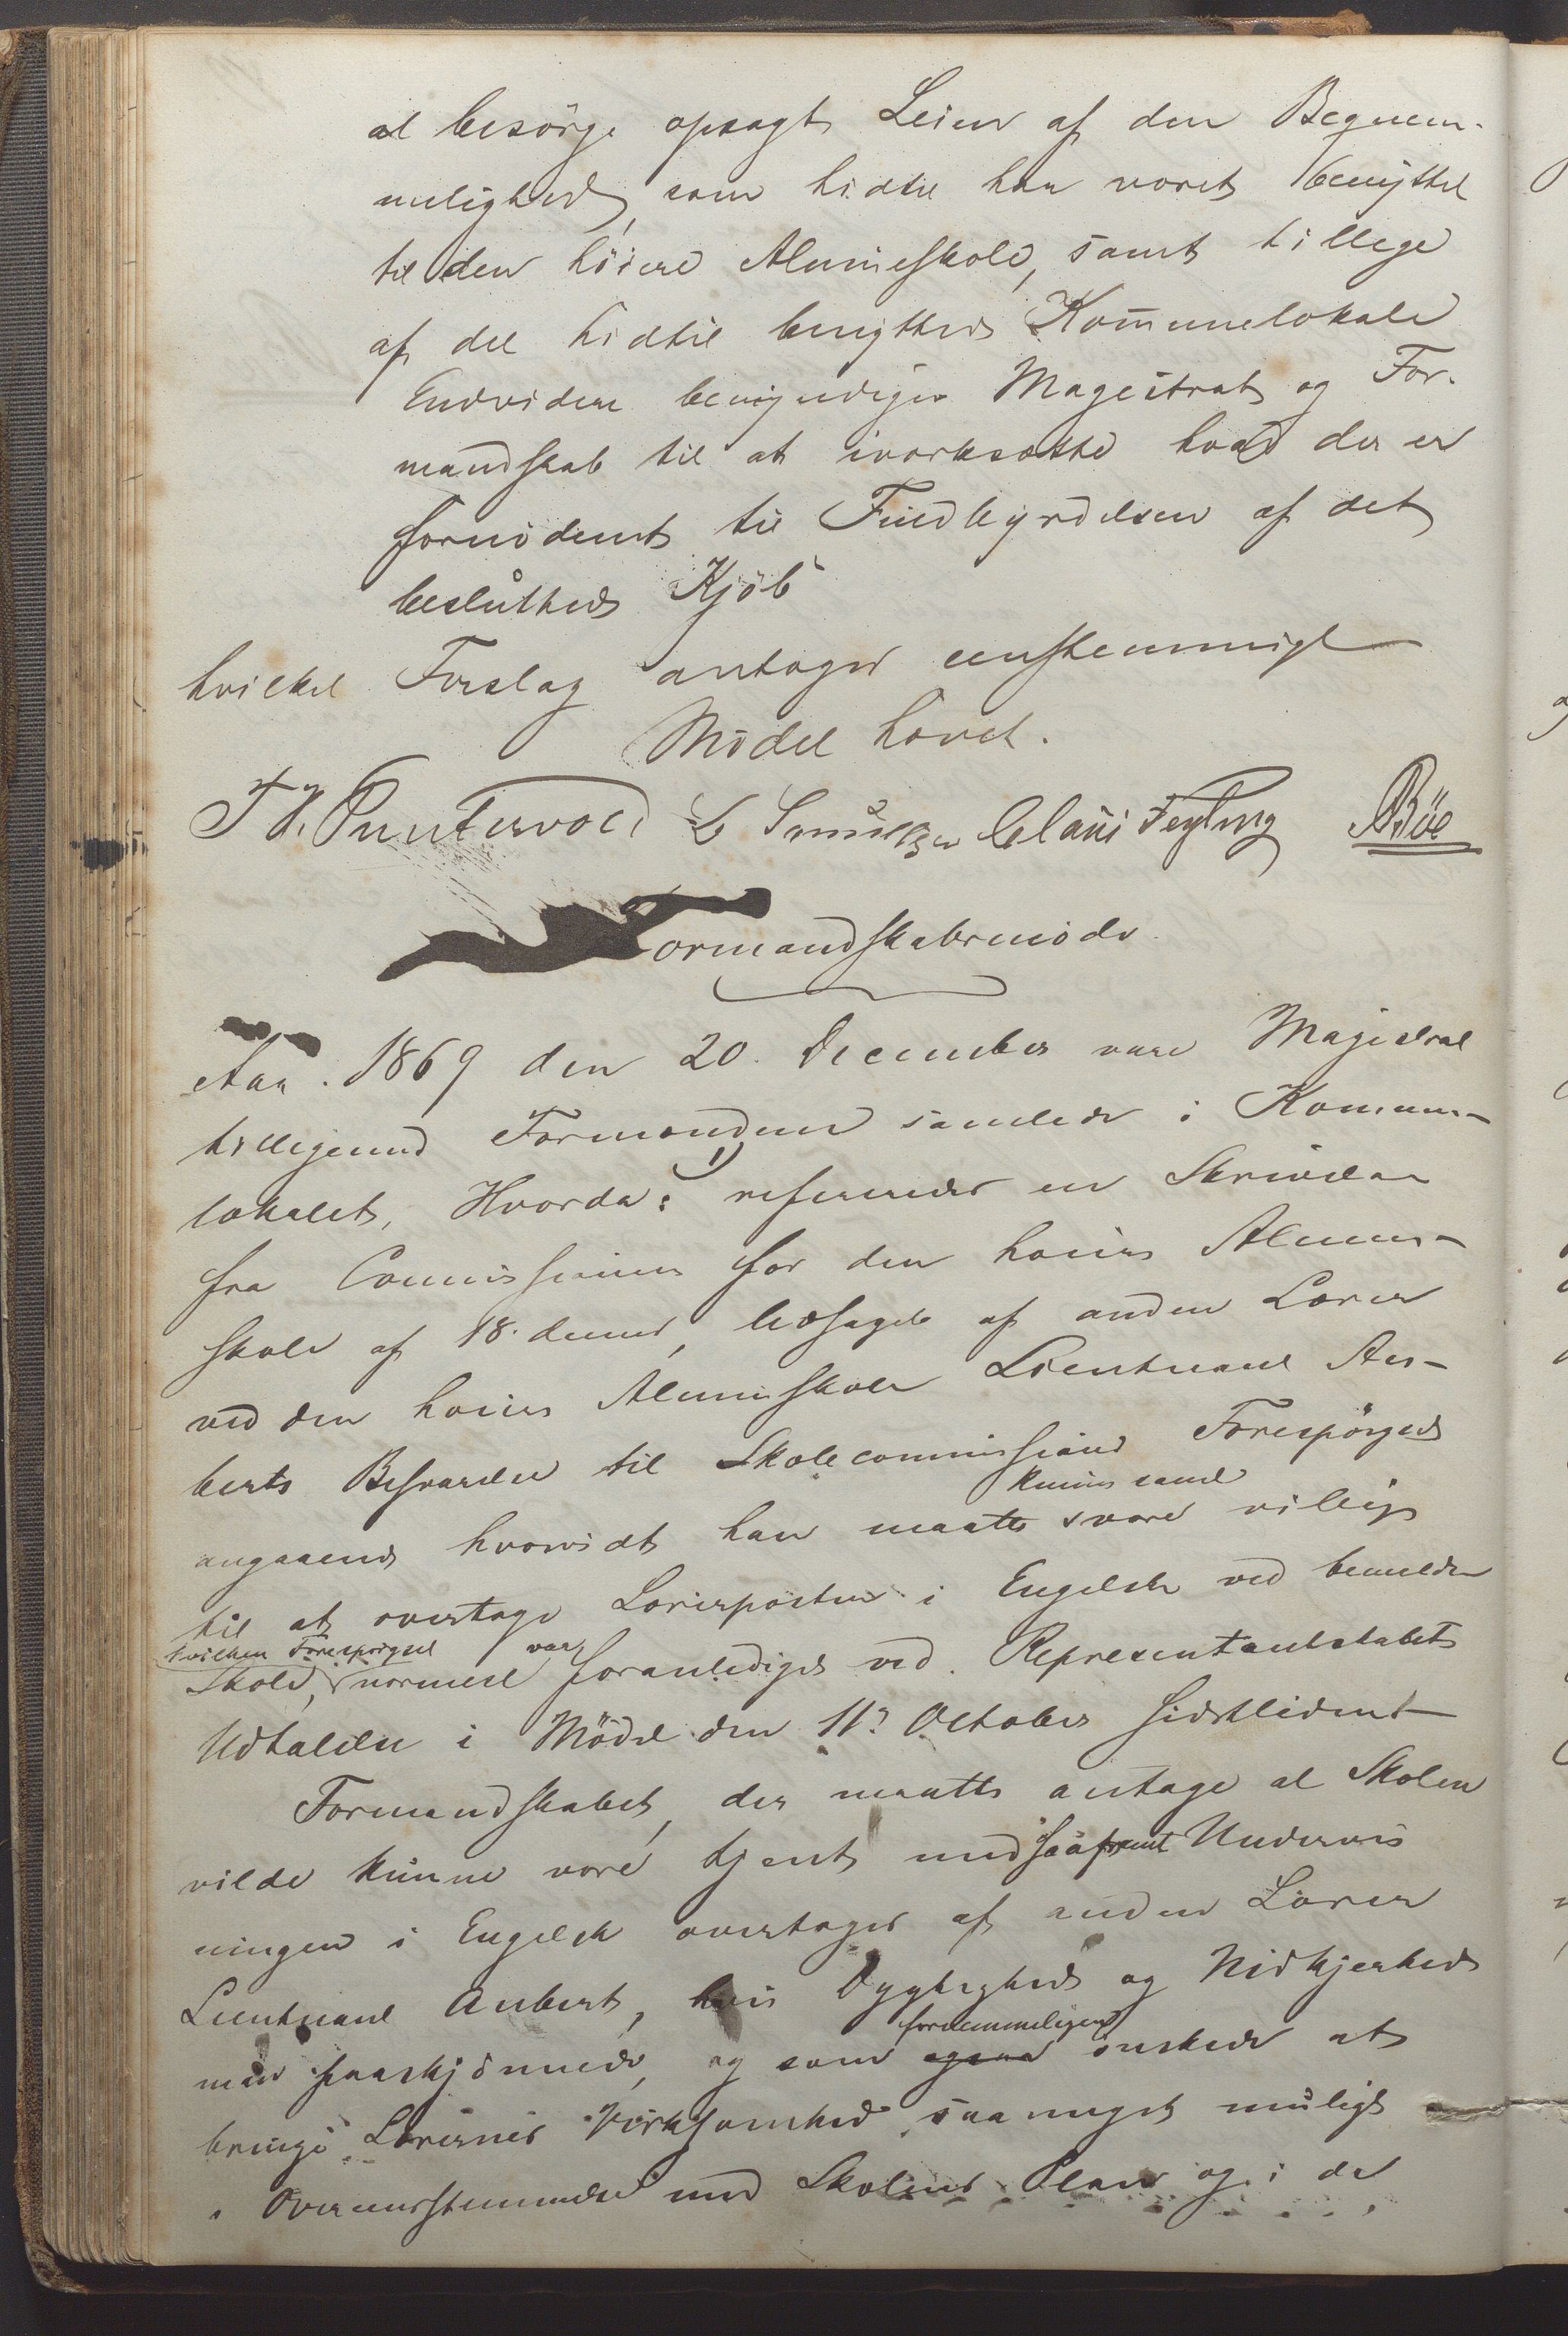 at besörge opsagt Leien af den Beqvem-
melighed, som hidtil har været benyttet
til den höiere Almueskole, samt tillige
af det hidtil benyttede Kommunelokale
Endvidere bemyndiges Magistrat og For-
mandskab til at iværksætte hvad der er
fornödent til Fuldbyrdelsen af det
besluttede Kjöb
hvilket Forslag antoges eenstemmigt
Mödet hævet.
Puntervold Claus Feyling Böe
Formandskabsmöde
Aar. 1869 den 20. December vare Magistrat
tilligemed Formændene samlede i Kommune-
lokalet, Hvorda: 1) refereredes en Skrivelse
fra Commissionen for den høiere Almue-
skole af 18. dennes, ledsaget af anden Lærer
ved den høiere Almueskole Lieutnant Au-
berts Besvarelse til Skolecommissionens Forespørgsel
angaaende hvorvidt han maatte kunne samt være villig
til at overtage Lærerposten i Engelsk ved bemeldte
Skole, hvilken Forespörgsel nærmest var foranlediget ved Repræsentantskabets
Udtalelse i Mödet den 11te October sidstleden
Formandskabet, der maatte antage at Skolen
vilde kunne være tjent med saafremt Undervis
ningen i Engelsk overtoges af anden Lærer
Lieutnant Aubert, hvis Dygtighed og Nidkjerhed
man paaskjönnede, og som ogsaa fornemmeligen önskede at
bringe Lærernes Virksomhed saa meget muligt
i Overeensstemmelse med Skolens Plan og i det